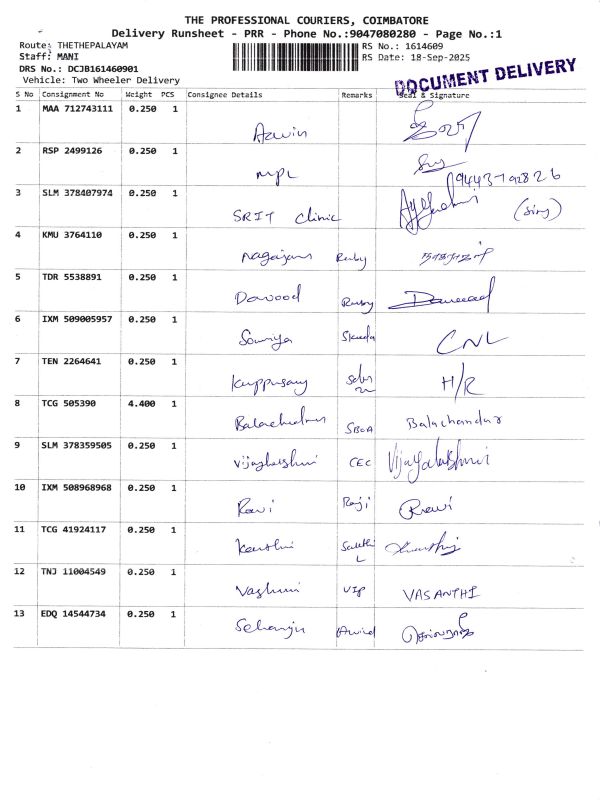 THE PROFESSIONAL COURIERS, COIMBATORE
Delivery Runsheet - PRR - Phone No.:9047080280 - Page No.:1
Route: THETHEPALAYAM RS No.: 1614609
Staff: MANI RS Date: 18-Sep-2025
DRS No.: DCJB161460901
Vehicle: Two Wheeler Delivery
DOCUMENT DELIVERY
S No Consignment No Weight PCS Consignee Details Remarks Seal & Signature
1 MAA 712743111 0.250 1 Azwin
2 RSP 2499126 0.250 1 MPL 94437 92826
3 SLM 378407974 0.250 1 SRIT Clinic (Siny)
4 KMU 3764110 0.250 1 Nagajans Ruby
5 TDR 5538891 0.250 1 Dawood Ruby
6 IXM 509005957 0.250 1 Soumya CNL
7 TEN 2264641 0.250 1 Kuppusamy H/R
8 TCG 505390 4.400 1 SBOA Balachandar
9 SLM 378359505 0.250 1 CEC Vijayalakshmi
10 IXM 508968968 0.250 1 Ravi Raji Ravi
11 TCG 41924117 0.250 1
12 TNJ 11004549 0.250 1 VIP VASANTHI
13 EDQ 14544734 0.250 1